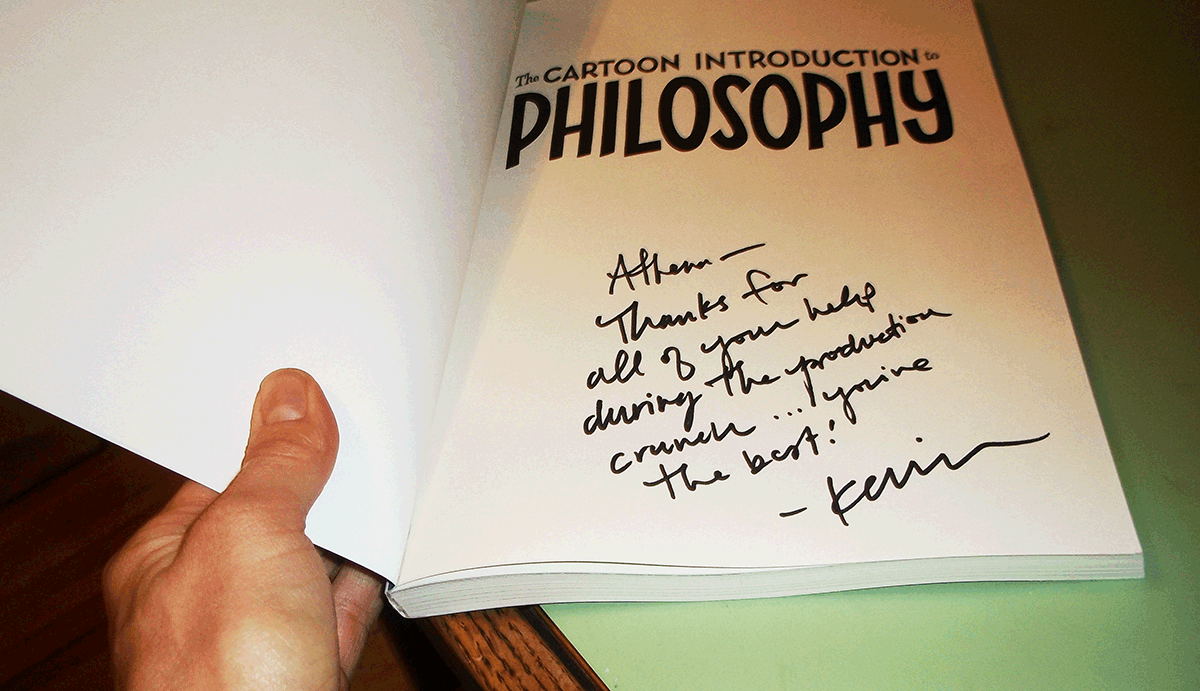 The CARTOON INTRODUCTION to
PHILOSOPHY
Athena—
Thanks for
all of your help
during the production
crunch... you're
the best!
- Kevin